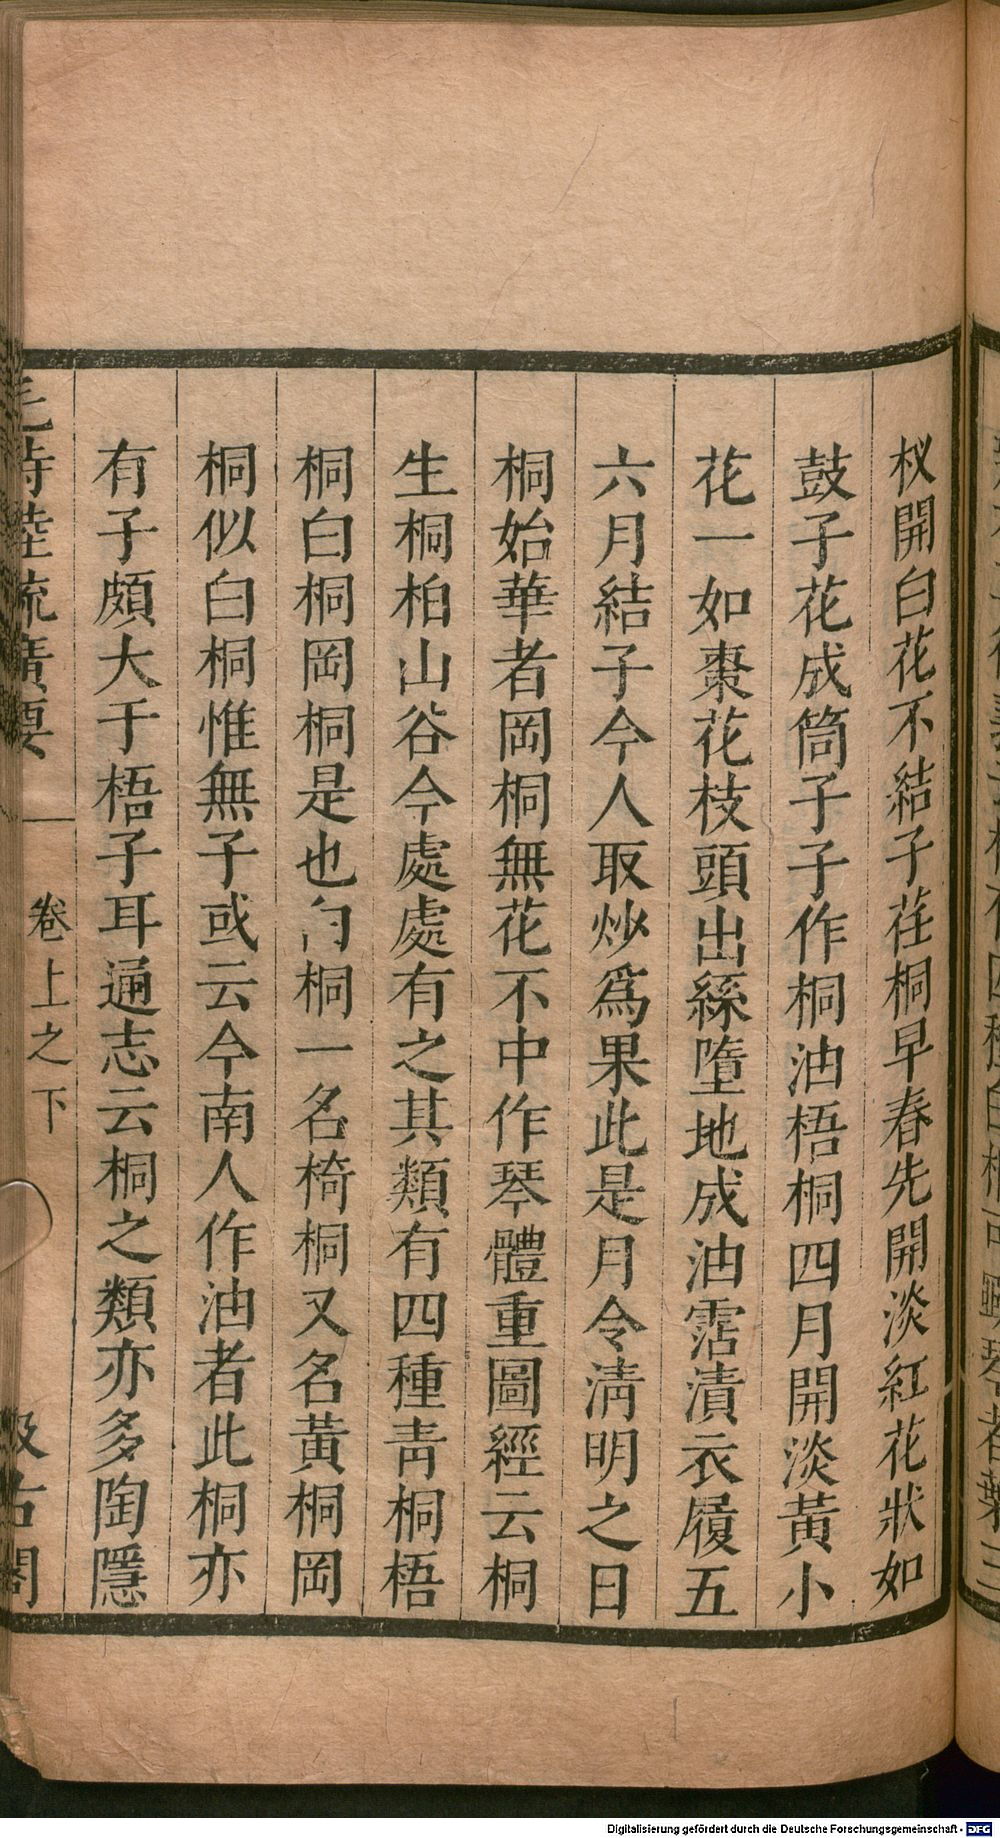 杈開白花不結子荏桐早春先開淡紅花狀如
鼓子花成筒子子作桐油梧桐四月開淡黃小
花一如棗花枝頭出絲墮地成油霑漬衣履五
六月結子今人取炒爲果此是月令淸明之日
桐始華者岡桐無花不中作琴體重圖經云桐
生桐柏山谷今處處有之其類有四種靑桐梧
桐白桐岡桐是也桐一名椅桐又名黃桐岡
桐似白桐惟無子或云今南人作油者此桐亦
有子頗大于梧子耳通志云桐之類亦多陶隱
毛詩陸疏廣要 卷上之下 汲古閣
Digitalisierung gefördert durch die Deutsche Forschungsgemeinschaft - DFG